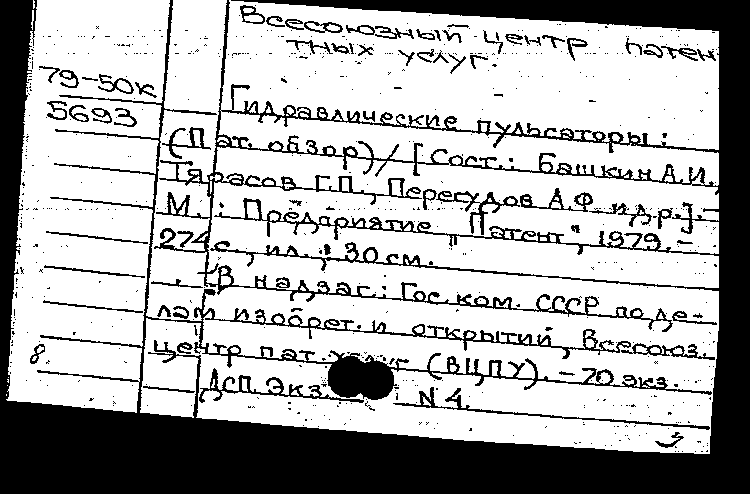 Всесоюзный центр патен-
тных услуг.
79-50к
5693
Гидравлические пульсаторы:
(Пат. обзор)/[Сост.: Башкин А.И.,
Тарасов Г.П., Пересудов А.Ф. и др.].-
М.: Предприятие "Патент", 1979.-
274с., ил.; 30 см.
В надзаг.: Гос. ком. СССР по де-
лам изобрет. и открытий, Всесоюз.
центр пат. услуг (ВЦПУ). - 70 экз.
8.
ДСП. Экз. N 4.